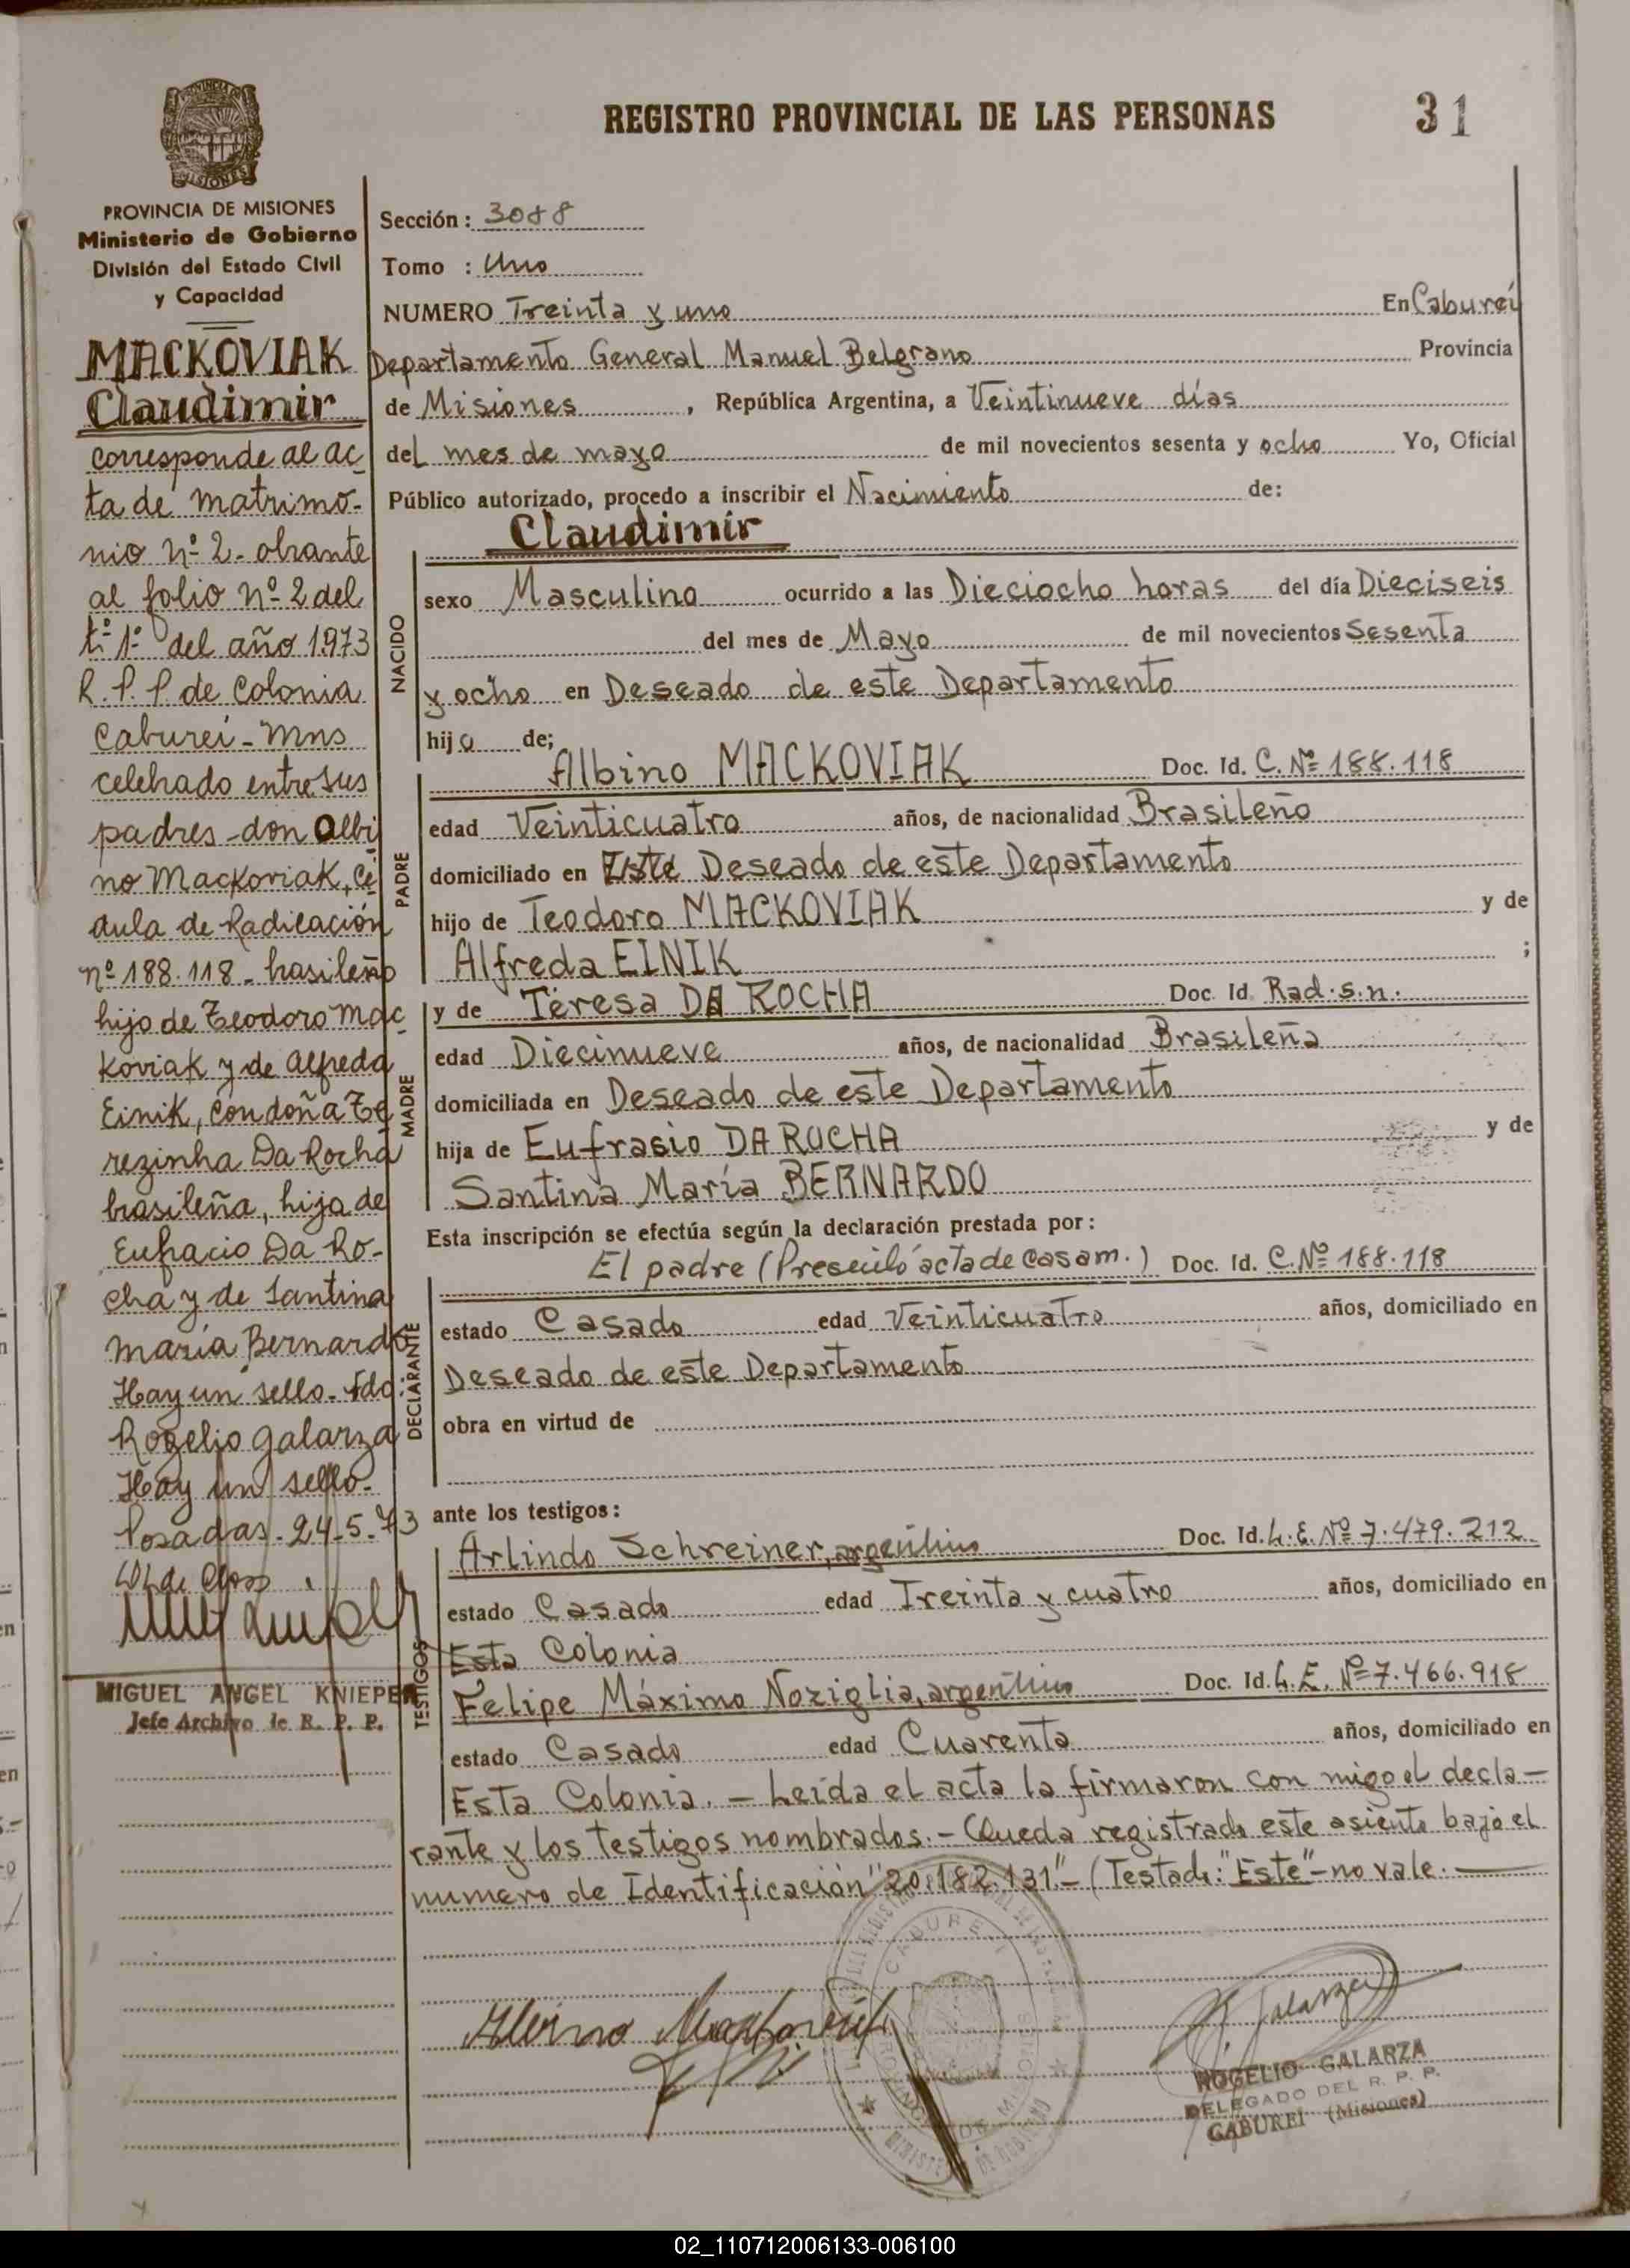 REGISTRO PROVINCIAL DE LAS PERSONAS
31
MISIONES
PROVINCIA DE MISIONES
Ministerio de Gobierno
División del Estado Civil
y Capacidad
MACKOVIAK
Claudimir
corresponde al ac-
ta de matrimo-
nio nº 2 - obrante
al folio nº 2 del
tº 1º del año 1973
R. P. P. de Colonia
Caburei - Mns
celebrado entre sus
padres - don Albi
no Mackoviak, Cé
dula de Radicación
nº 188.118 - brasileño
hijo de Teodoro Mac
koviak y de Alfreda
Einik, con doña Te
rezinha Da Rocha
brasileña, hija de
Eufracio Da Ro-
cha y de Santina
María Bernardo
Hay un sello. Fdo:
Rogelio Galarza
Hay un sello.
Posadas - 24-5-73
MIGUEL ANGEL KNIEPER
Jefe Archivo de R. P. P.
Sección: 3088
Tomo : Uno
NUMERO Treinta y uno En Caburei
Departamento General Manuel Belgrano Provincia
de Misiones, República Argentina, a Veintinueve días
del mes de mayo de mil novecientos sesenta y ocho Yo, Oficial
Público autorizado, procedo a inscribir el Nacimiento de:
Claudimir
NACIDO
sexo Masculino ocurrido a las Dieciocho horas del día Dieciseis
del mes de Mayo de mil novecientos Sesenta
y ocho en Deseado de este Departamento
hijo de;
PADRE
Albino MACKOVIAK Doc. Id. C. Nº 188.118
edad Veinticuatro años, de nacionalidad Brasileño
domiciliado en Este Deseado de este Departamento
hijo de Teodoro MACKOVIAK y de
Alfreda EINIK ;
MADRE
y de Teresa DA ROCHA Doc. Id. Rad. s.n.
edad Diecinueve años, de nacionalidad Brasileña
domiciliada en Deseado de este Departamento
hija de Eufrasio DA ROCHA y de
Santina María BERNARDO
Esta inscripción se efectúa según la declaración prestada por:
DECLARANTE
El padre (Presentó acta de casam.) Doc. Id. C. Nº 188.118
estado Casado edad Veinticuatro años, domiciliado en
Deseado de este Departamento
obra en virtud de
ante los testigos:
TESTIGOS
Arlindo Schreiner, argentino Doc. Id. L. E. Nº 7.479.212
estado Casado edad Treinta y cuatro años, domiciliado en
Esta Colonia
Felipe Máximo Noziglia, argentino Doc. Id. L. E. Nº 7.466.918
estado Casado edad Cuarenta años, domiciliado en
Esta Colonia. - Leída el acta la firmaron con migo el decla-
rante y los testigos nombrados. - Queda registrado este asiento bajo el
numero de Identificación "20.182.131" - (Testado: "Este" - no vale.
CABUREI
PROVINCIA DE MISIONES
Albino Mackoviak
R. Galarza
ROGELIO GALARZA
DELEGADO DEL R. P. P.
CABUREI (Misiones)
02_110712006133-006100